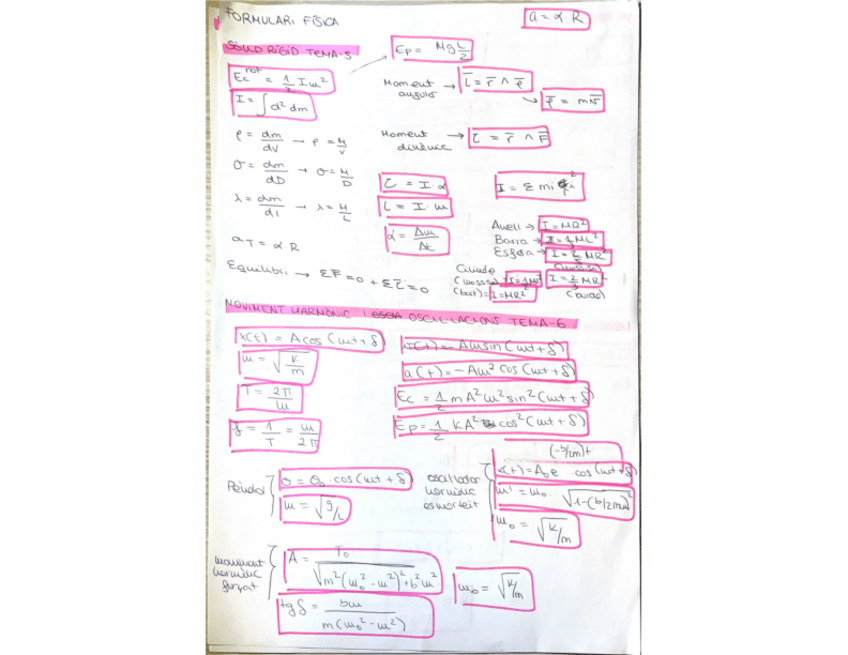 FORMULARI FÍSICA
a = α R
SÒLID RÍGID TEMA-5
Ep = Mg L/2
Ec rot = 1/2 I ω²
Moment angular → L̄ = r̄ ∧ p̄
→ p̄ = m v̄
I = ∫ d² dm
ρ = dm/dV → ρ = M/V
Moment dinàmic → τ = r̄ ∧ F̄
σ = dm/dD → σ = M/D
τ = I · α
I = Σ mi
λ = dm/dl → λ = M/L
L = I · ω
α = Δω/Δt
Anell → I = MR²
Barra → I = ML²
Esfera → I = 2/5 MR²
(massissa)
aT = α R
Equilibri → ΣF̄ = 0 + Στ̄ = 0
Cilindre
(massissa) I = 1/2 MR²
I = 2/3 MR²
(buit) = I = MR²
(buida)
MOVIMENT HARMÒNIC I OSCILLACIONS TEMA-6
x(t) = A cos (ωt + δ)
v(t) = - Aω sin (ωt + δ)
ω = √(k/m)
a(t) = - Aω² cos (ωt + δ)
T = 2π/ω
Ec = 1/2 m A² ω² sin² (ωt + δ)
f = 1/T = ω/2π
Ep = 1/2 K A² cos² (ωt + δ)
Pèndol
θ = θ₀ · cos (ωt + δ)
ω = √(g/L)
oscil·lador harmònic esmorteït
x(t) = A₀ e (-b/2m)t cos (ωt + δ)
ω' = ω₀ · √(1-(b/2mω₀)²)
ω₀ = √(k/m)
moviment harmònic forçat
A = T₀ / √(m² (ω₀² - ω²)² + b² ω²)
ω₀ = √(k/m)
tg δ = bω / m(ω₀² - ω²)